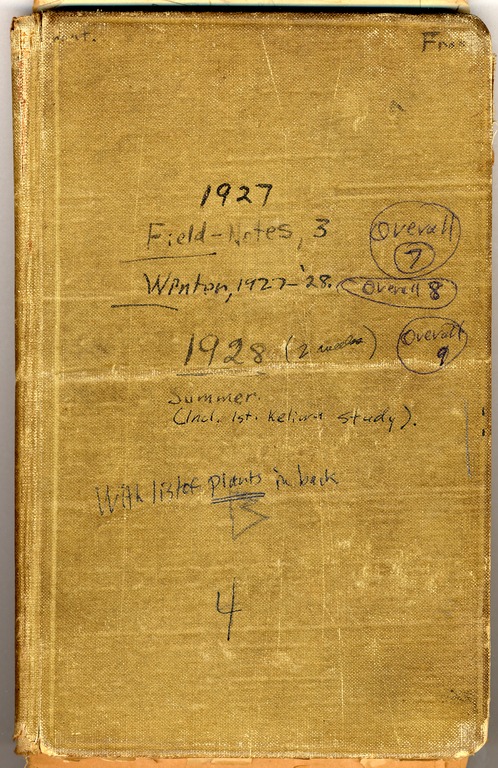 1927
Field-Notes, 3
Overall
7
Winter, 1927-'28.
Overall 8
1928 (2 weeks)
Overall
9
Summer.
(Incl. 1st. study).
With list of plants in back
4